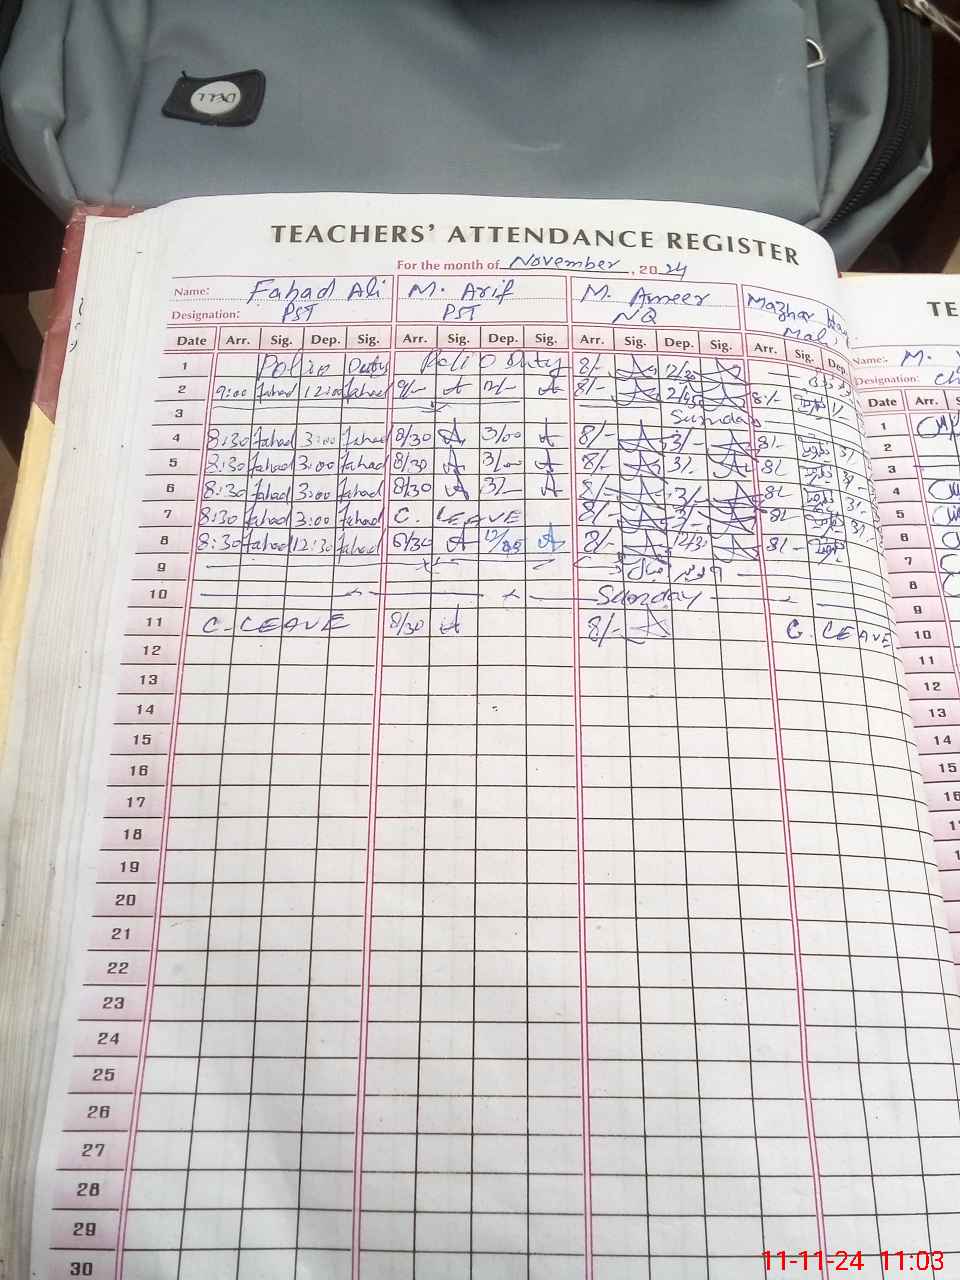 DELL
TEACHERS' ATTENDANCE REGISTER
For the month of November, 2024
Name: Fahad Ali M. Arif M. Ameer Mazhar
Designation: PST PST NQ Mali
Date Arr. Sig. Dep. Sig. Arr. Sig. Dep. Sig. Arr. Sig. Dep. Sig. Arr. Sig. Dep.
1 Polio Duty Polio Duty 8/- 12/30
2 9:00 Fahad 12:00 Fahad 9/- A 12/- A 8/- 8/- 1/-
3 Sunday
4 8:30 Fahad 3:00 Fahad 8/30 A 3/00 A 8/- 3/- 8/- 3/-
5 8:30 Fahad 3:00 Fahad 8/30 A 3/00 A 8/- 3/- 8/- 3/-
6 8:30 Fahad 3:00 Fahad 8/30 A 3/- A 8/- 3/- 8/- 3/-
7 8:30 Fahad 3:00 Fahad C. LEAVE 8/- 3/- 8/- 3/-
8 8:30 Fahad 12:30 Fahad 8/30 A A 8/- 12/30 8/-
9 9 نومبر اقبال
10 Sunday
11 C. LEAVE 8/30 A 8/- C. LEAVE
12
13
14
15
16
17
18
19
20
21
22
23
24
25
26
27
28
29
30
TE
Name: M.
Designation:
Date Arr.
1
2
3
4
5
6
7
8
9
10
11
12
13
14
15
16
11-11-24 11:03